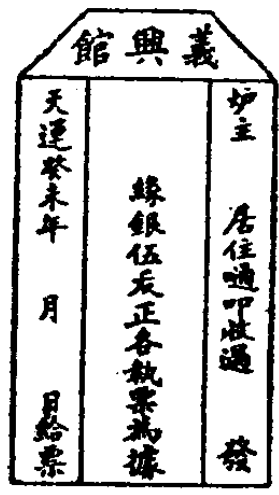 義興館
炉主 居住 收過 發
緣銀伍 正各執票為據
天運癸未年 月 日給票